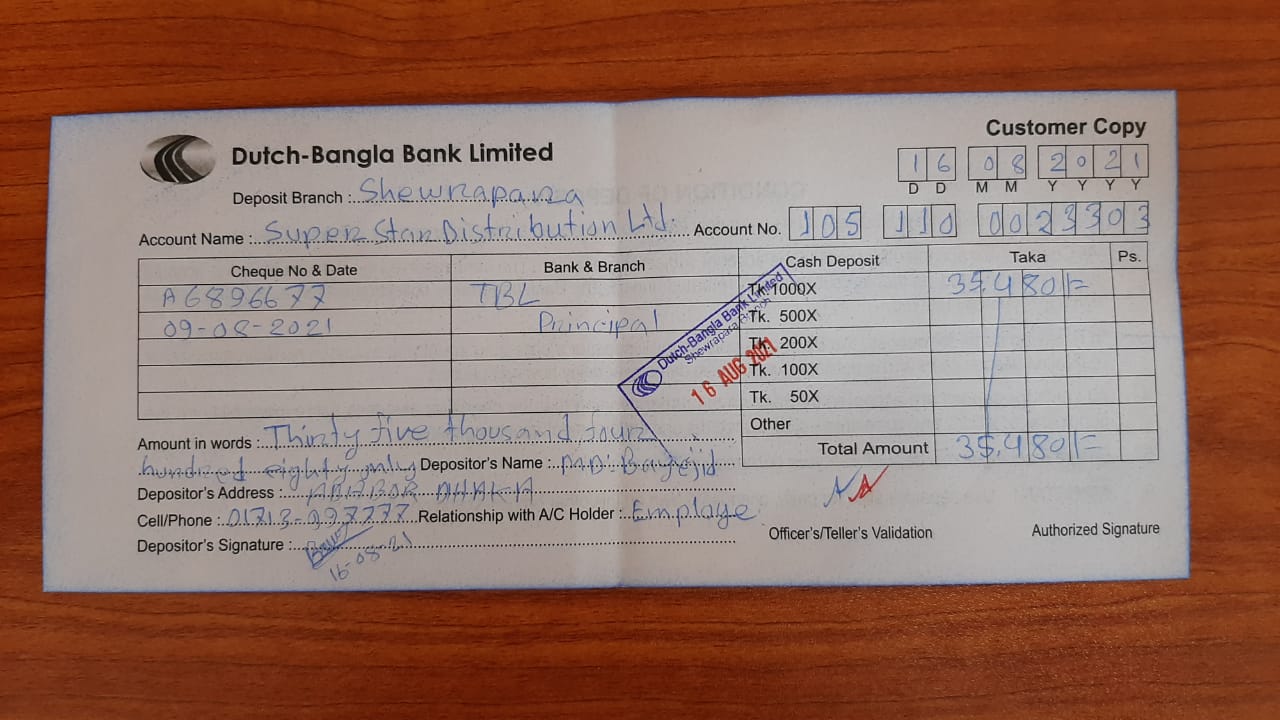 Customer Copy
Dutch-Bangla Bank Limited
16 08 2021
D D M M Y Y Y Y
Deposit Branch : Shewrapara
Account Name : Super Star Distribution Ltd. Account No. 105 110 0023303
Cheque No & Date Bank & Branch Cash Deposit Taka Ps.
A6896677 TBL Tk. 1000X 35,480/=
09-08-2021 Principal Tk. 500X
Tk. 200X
Tk. 100X
Tk. 50X
Other
Dutch-Bangla Bank Limited
Shewrapara Branch
16 AUG 2021
Total Amount 35,480/=
Amount in words : Thirty five thousand four
hundred eighty only Depositor's Name : MD: Bayejid
Depositor's Address : ADABOR DHAKA
Cell/Phone : 01713-997777 Relationship with A/C Holder : Employe
Depositor's Signature :
16-08-21
Officer's/Teller's Validation Authorized Signature